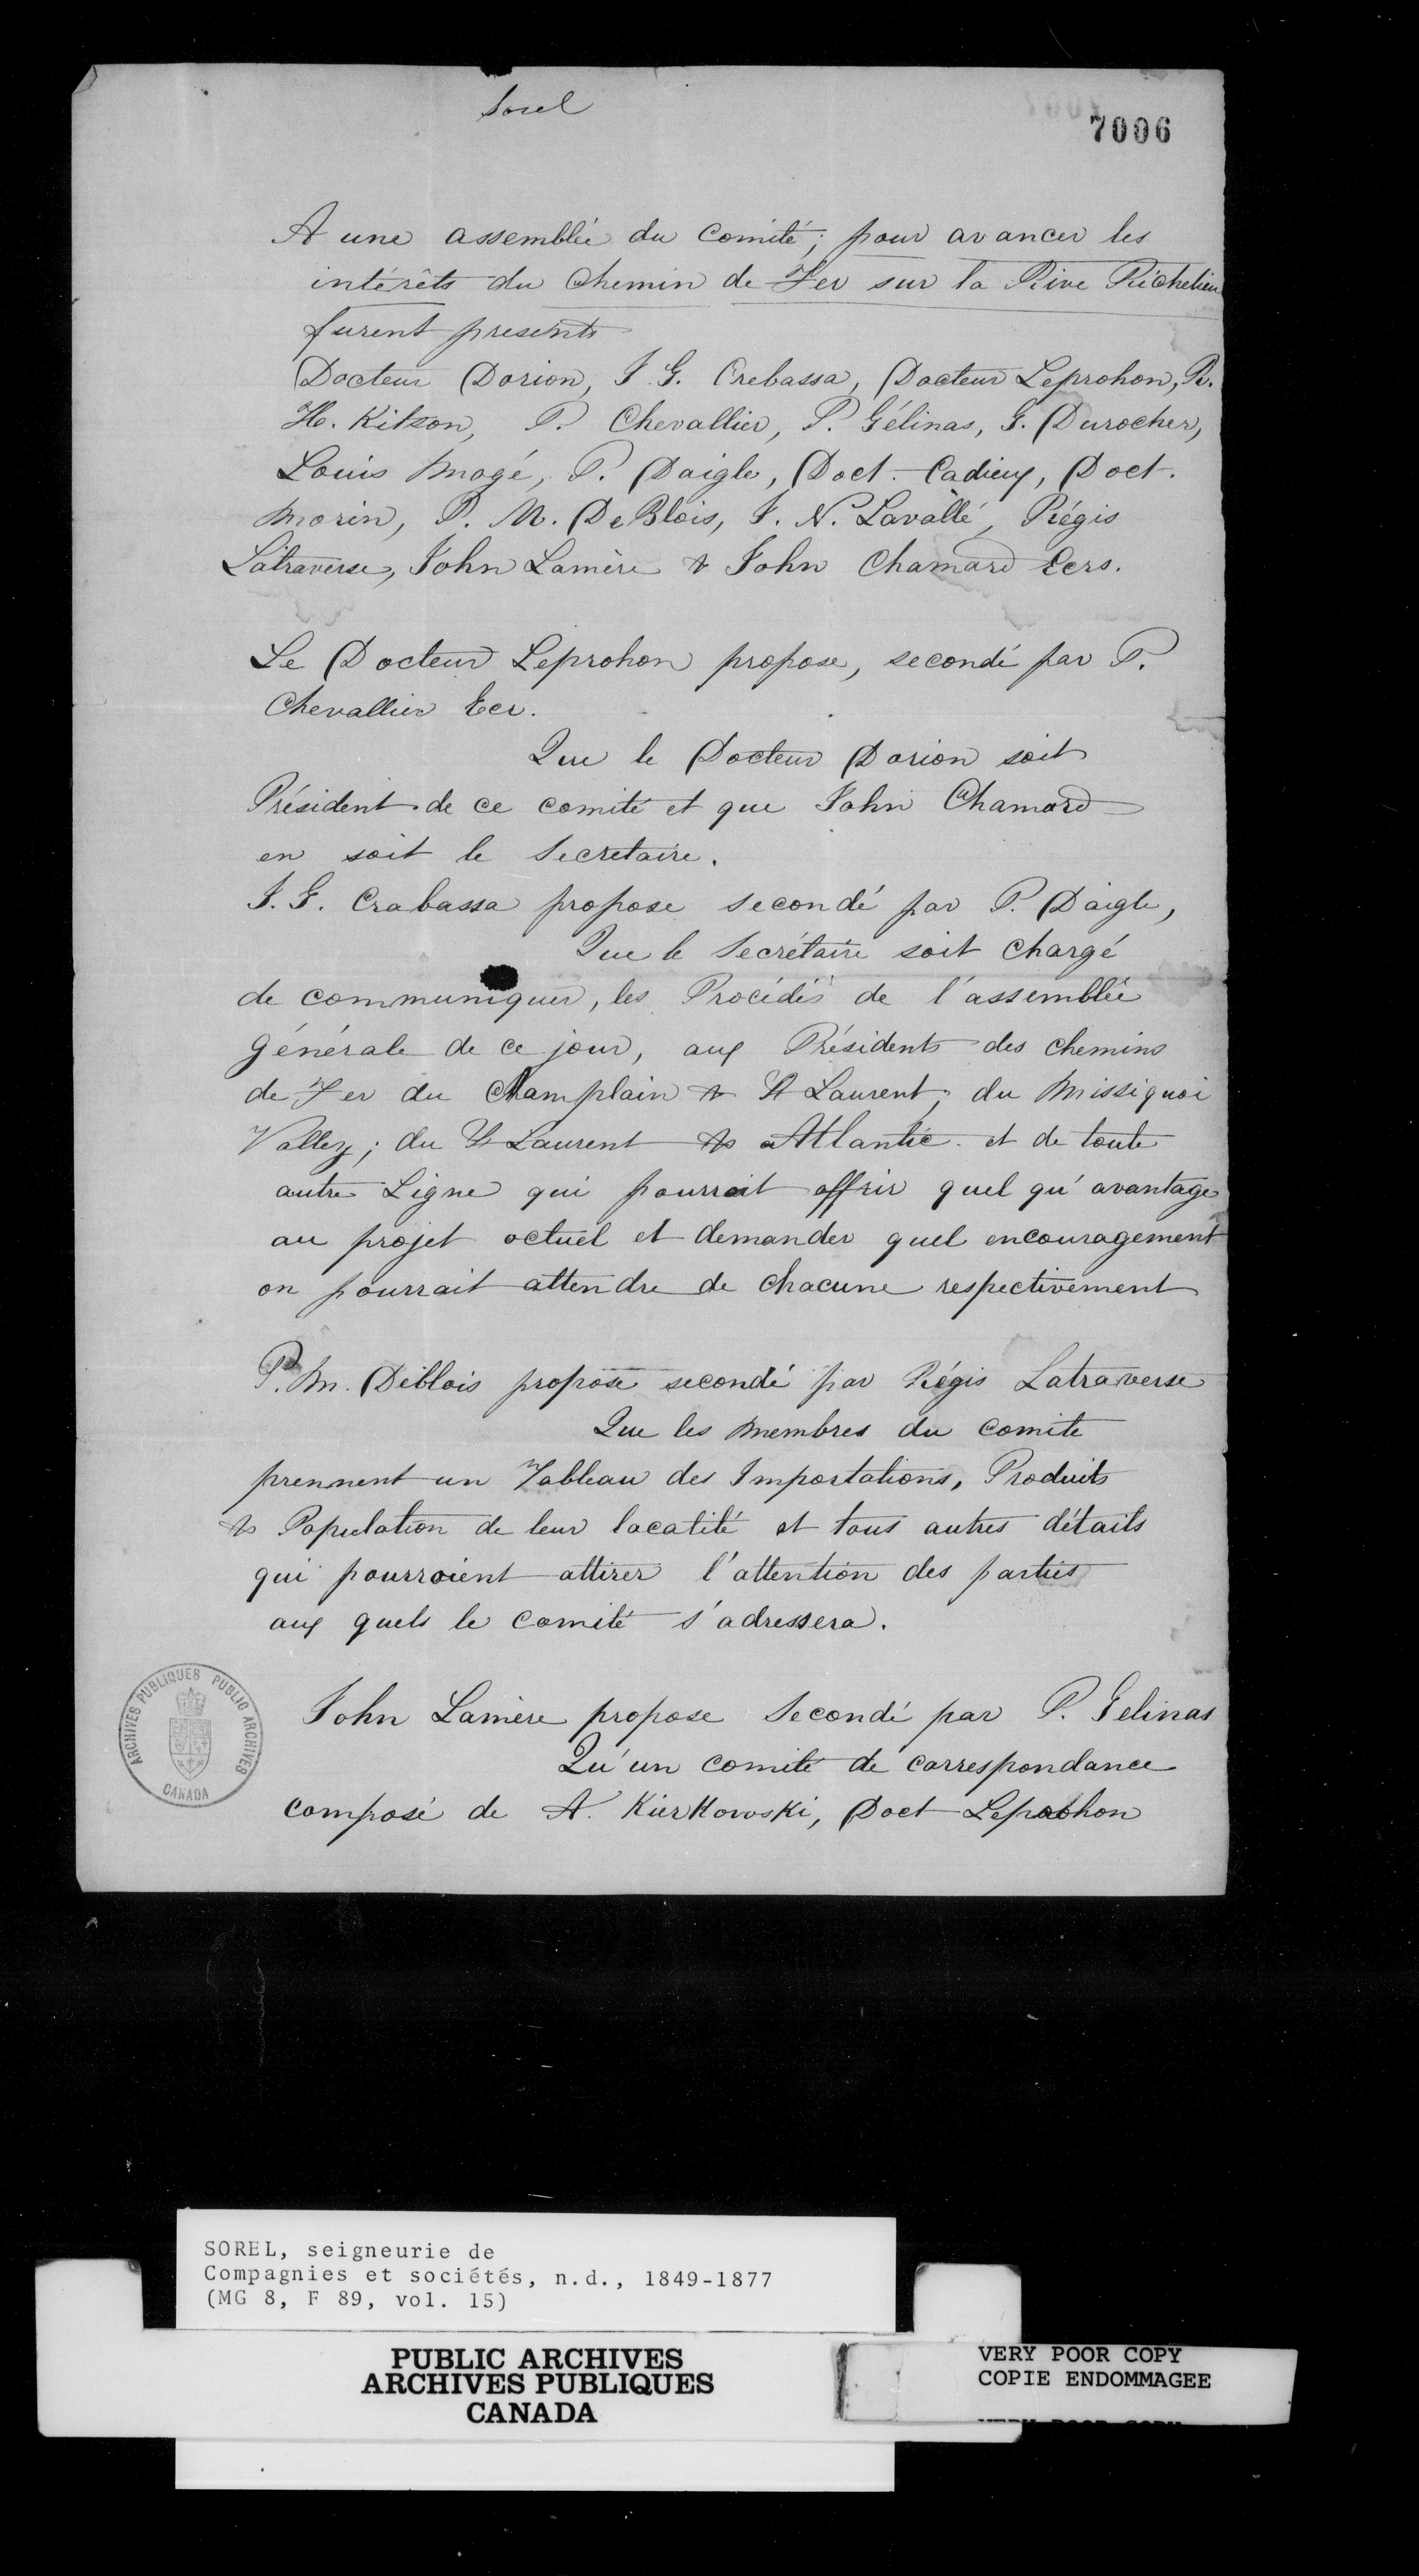 Sorel
7006
A une assemblée du Comité; pour avancer les
intérêts du Chemin de Fer sur la Rive Richelieu
furent presents
Docteur Dorion, J. G. Crebassa, Docteur Leprohon, R.
H. Kitson, P. Chevallier, P. Gélinas, G. Durocher,
Louis Mogé, P. Daigle, Doct. Cadieux, Doct.
Morin, P. M. DeBlois, J. N. Lavallé, Régis
Latraverse, John Lamère & John Chamard Ecrs.
Le Docteur Leprohon propose, secondé par P.
Chevallier Ecr.
Que le Docteur Dorion soit
Président de ce comité et que John Chamard
en soit le Secretaire.
J. G. Crabassa propose secondé par P. Daigle,
Que le Secrétaire soit chargé
de communiquer, les Procédés de l'assemblée
générale de ce jour, aux Présidents des chemins
de Fer du Champlain & St Laurent; du Missiquoi
Valley; du St Laurent & Atlantic et de toute
autre Ligne qui pourrait offrir quel qu'avantage
au projet actuel et demander quel encouragement
on pourrait attendre de chacune respectivement
P. M. Déblois propose secondé par Régis Latraverse
Que les membres du Comite
prennent un Tableau des Importations, Produits
& Population de leur localité et tous autres détails
qui pourroient attirer l'attention des parties
aux quels le Comité s'adressera.
John Lamère propose Secondé par P. Gelinas
Qu'un comité de correspondance
composé de A. Kierkowski, Doct Leprohon
ARCHIVES PUBLIQUES PUBLIC ARCHIVES
CANADA
SOREL, seigneurie de
Compagnies et sociétés, n.d., 1849-1877
(MG 8, F 89, vol. 15)
PUBLIC ARCHIVES
ARCHIVES PUBLIQUES
CANADA
VERY POOR COPY
COPIE ENDOMMAGEE
VERY POOR COPY